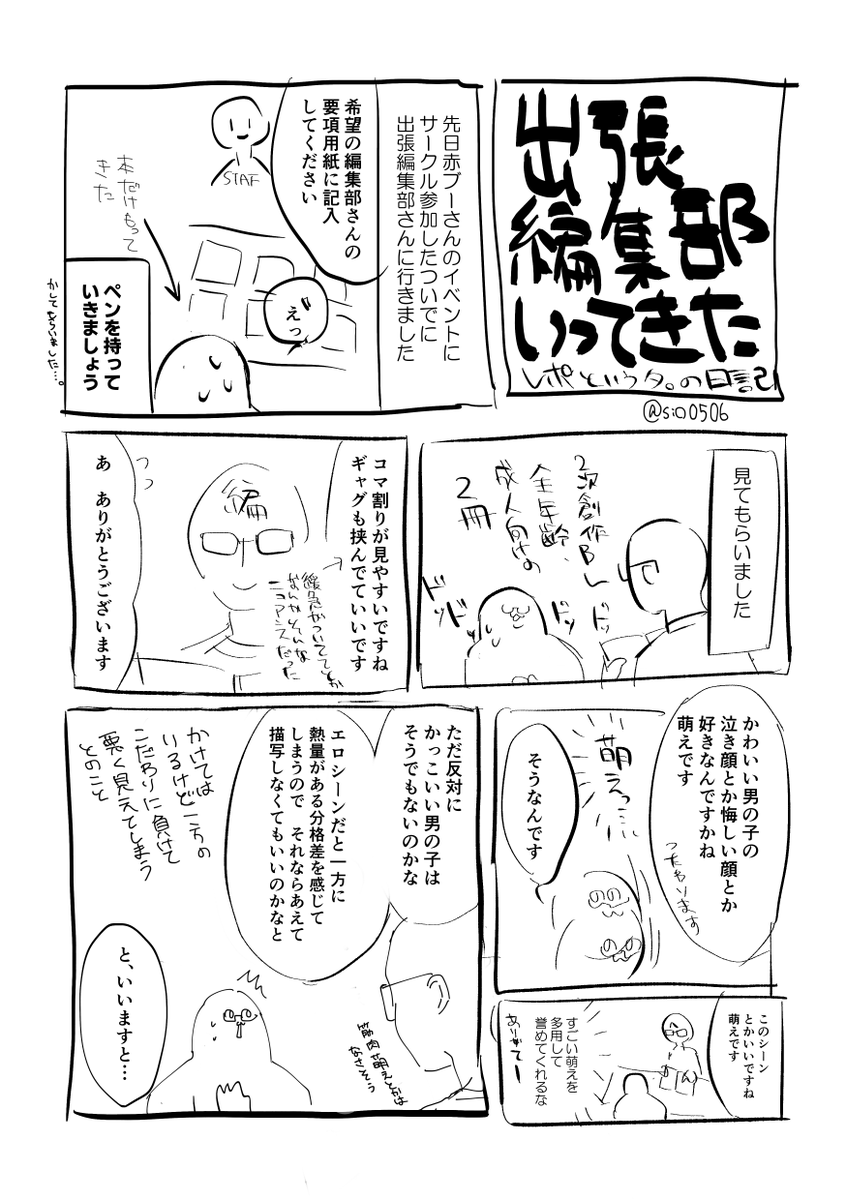 出張
編集部
いってきた
レポというタ。の日記
@sio0506
先日赤ブーさんのイベントに
サークル参加したついでに
出張編集部さんに行きました
希望の編集部さんの
要項用紙に記入
してください
STAF
えっ
本だけもって
きた
ペンを持って
いきましょう
かしてもらいました…。
見てもらいました
2次創作BL
全年齢、
成人向けの
2冊
ドッ
ドッ
ドッ
ドッ
コマ割りが見やすいですね
ギャグも挟んでていいです
編
緩急がついててとか
なんかそんな
ニュアンスだった
あ ありがとうございます
かわいい男の子の
泣き顔とか悔しい顔とか
好きなんですかね
萌えです
つたわります
萌えっ…
そうなんです
このシーン
とかいいですね
萌えです
すごい萌えを
多用して
誉めてくれるな
ありがてー
ただ反対に
かっこいい男の子は
そうでもないのかな
エロシーンだと一方に
熱量がある分格差を感じて
しまうので それならあえて
描写しなくてもいいのかなと
かけては
いるけど一方の
こだわりに負けて
悪く見えてしまう
とのこと
筋肉萌えとかは
なさそう
と、いいますと…